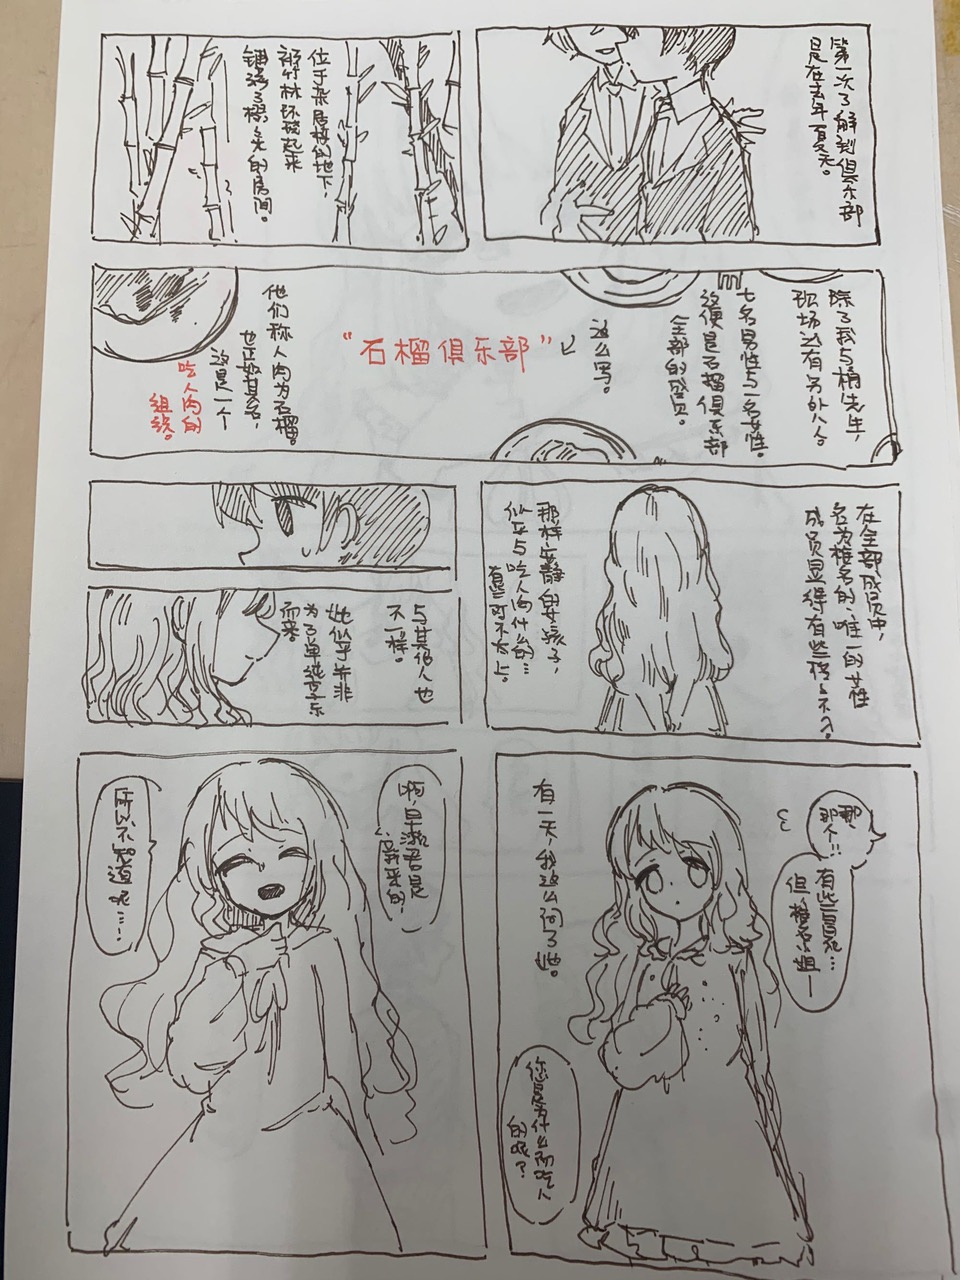 第一次了解到俱乐部
是在去年夏天。
位于杂居楼的地下，
被竹林环绕起来
铺满了榻榻米的房间。
除了我与楠先生，
现场还有另外八人。
七名男性与一名女性。
这便是石榴俱乐部
全部的成员。
这么写。
“石榴俱乐部”
他们称人肉为石榴。
也正如其名，
这是一个
吃人肉的
组织。
在全部成员中，
名为椎名的，唯一的女性
成员显得有些格格不入。
那样安静的女孩子，
似乎与吃人肉什么的…
有些对不太上。
与其他人也
不一样。
她似乎并非
为了单纯享乐
而来
那
那个!!
有些冒犯…
但，椎名小姐—
有一天，我这么问了她。
您是为什么而吃人
的呢？
啊，早濑君是
后来的，
所以不知道呢…！